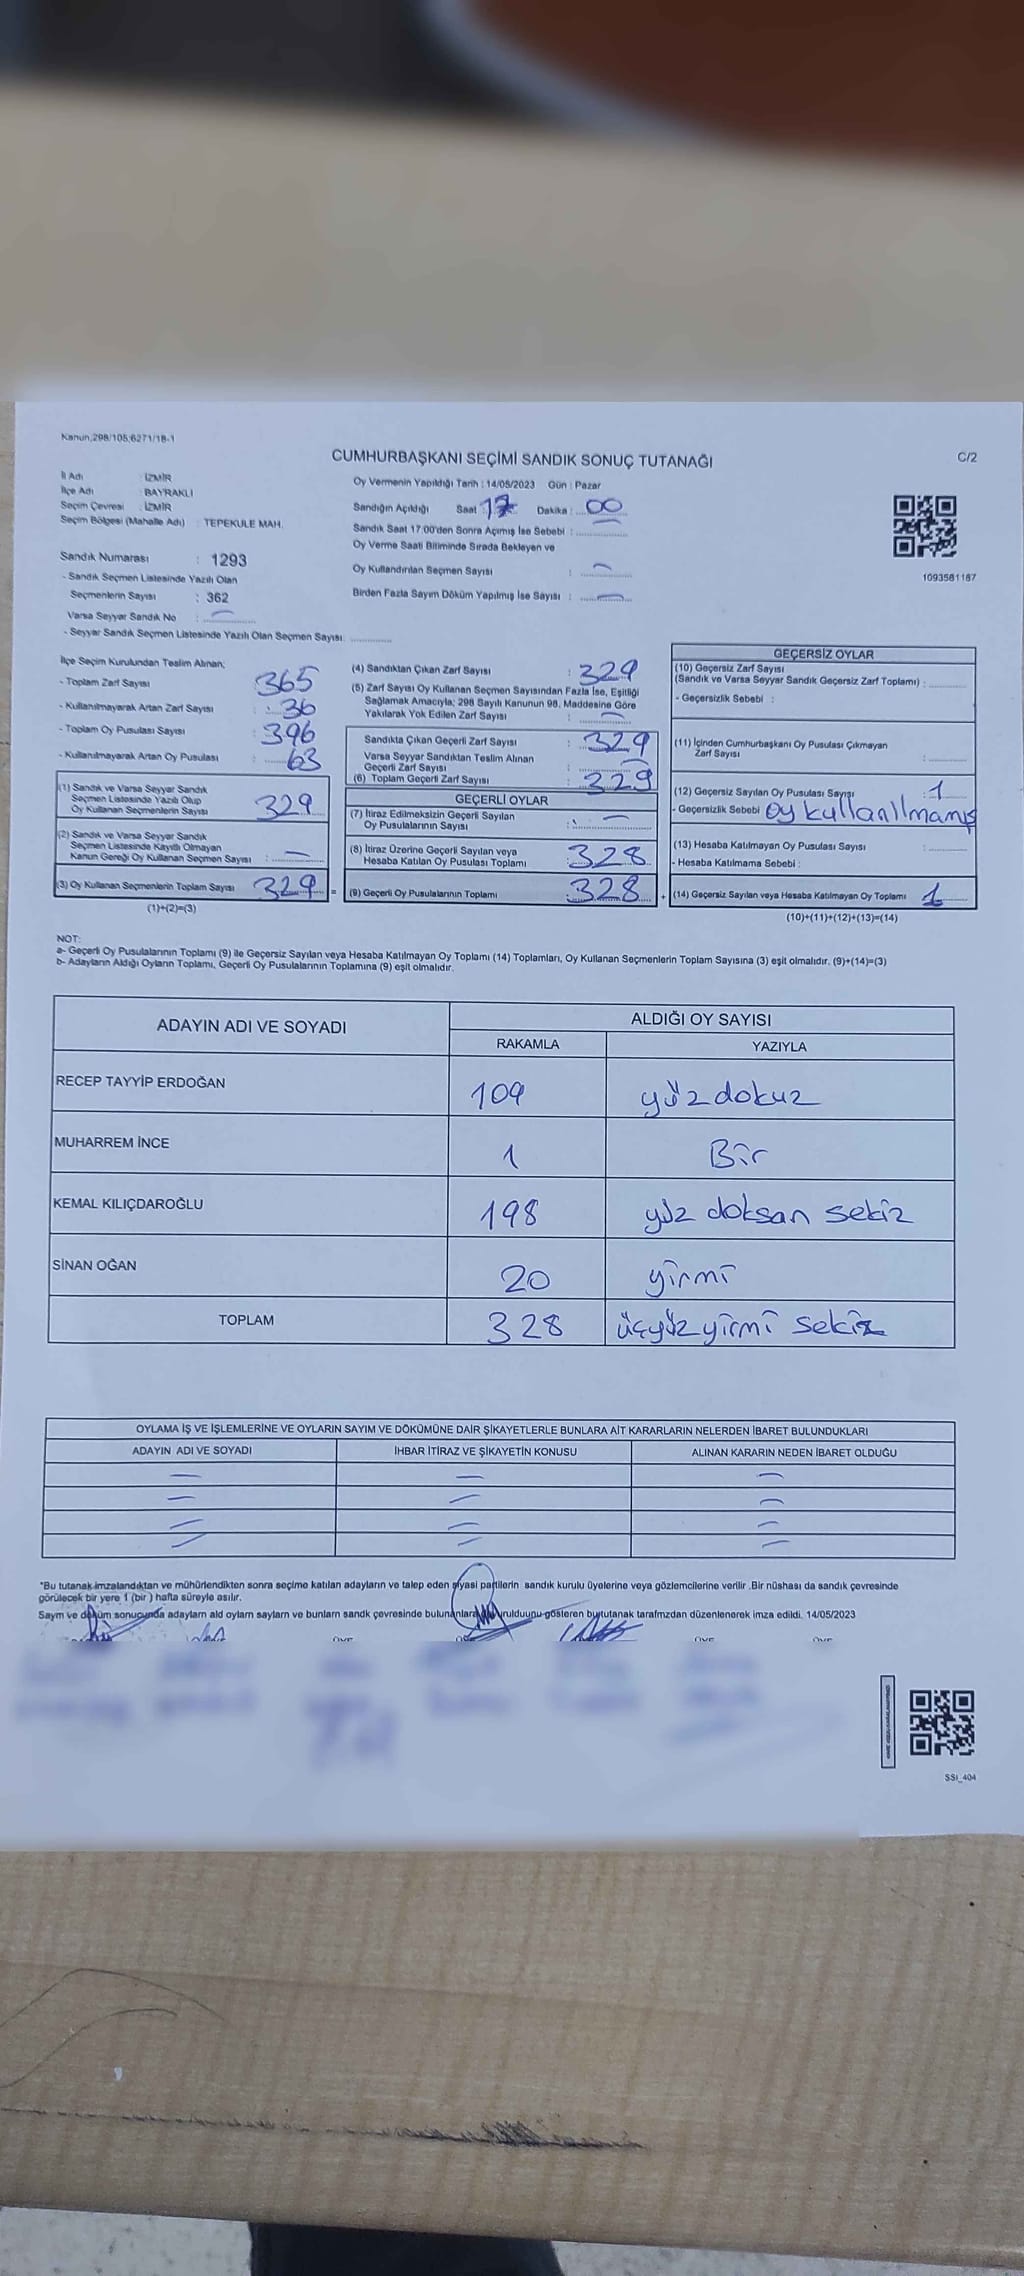 Kanun,298/105;6271/18-1
CUMHURBAŞKANI SEÇİMİ SANDIK SONUÇ TUTANAĞI
C/2
İl Adı : İZMİR
İlçe Adı : BAYRAKLI
Seçim Çevresi : İZMİR
Seçim Bölgesi (Mahalle Adı) : TEPEKULE MAH.
Oy Vermenin Yapıldığı Tarih : 14/05/2023 Gün : Pazar
Sandığın Açıldığı Saat : 17 Dakika : 00
Sandık Saat 17:00'den Sonra Açımış İse Sebebi :
Oy Verme Saati Bitiminde Sırada Bekleyen ve
Oy Kullandırılan Seçmen Sayısı : —
Birden Fazla Sayım Döküm Yapılmış İse Sayısı : —
1093581187
Sandık Numarası : 1293
- Sandık Seçmen Listesinde Yazılı Olan
Seçmenlerin Sayısı : 362
Varsa Seyyar Sandık No : —
- Seyyar Sandık Seçmen Listesinde Yazılı Olan Seçmen Sayısı:
İlçe Seçim Kurulundan Teslim Alınan;
- Toplam Zarf Sayısı : 365
- Kullanılmayarak Artan Zarf Sayısı : 36
- Toplam Oy Pusulası Sayısı : 396
- Kullanılmayarak Artan Oy Pusulası : 63
(1) Sandık ve Varsa Seyyar Sandık
Seçmen Listesinde Yazılı Olup
Oy Kullanan Seçmenlerin Sayısı 329
(2) Sandık ve Varsa Seyyar Sandık
Seçmen Listesinde Kayıtlı Olmayan
Kanun Gereği Oy Kullanan Seçmen Sayısı : —
(3) Oy Kullanan Seçmenlerin Toplam Sayısı 329 =
(1)+(2)=(3)
(4) Sandıktan Çıkan Zarf Sayısı : 329
(5) Zarf Sayısı Oy Kullanan Seçmen Sayısından Fazla İse, Eşitliği
Sağlamak Amacıyla; 298 Sayılı Kanunun 98. Maddesine Göre
Yakılarak Yok Edilen Zarf Sayısı : —
Sandıkta Çıkan Geçerli Zarf Sayısı : 329
Varsa Seyyar Sandıktan Teslim Alınan
Geçerli Zarf Sayısı : —
(6) Toplam Geçerli Zarf Sayısı : 329
GEÇERLİ OYLAR
(7) İtiraz Edilmeksizin Geçerli Sayılan
Oy Pusulalarının Sayısı : —
(8) İtiraz Üzerine Geçerli Sayılan veya
Hesaba Katılan Oy Pusulası Toplamı : 328
(9) Geçerli Oy Pusulalarının Toplamı : 328 +
GEÇERSİZ OYLAR
(10) Geçersiz Zarf Sayısı
(Sandık ve Varsa Seyyar Sandık Geçersiz Zarf Toplamı) :
- Geçersizlik Sebebi :
(11) İçinden Cumhurbaşkanı Oy Pusulası Çıkmayan
Zarf Sayısı :
(12) Geçersiz Sayılan Oy Pusulası Sayısı : 1
- Geçersizlik Sebebi oy kullanılmamış
(13) Hesaba Katılmayan Oy Pusulası Sayısı :
- Hesaba Katılmama Sebebi :
(14) Geçersiz Sayılan veya Hesaba Katılmayan Oy Toplamı 1
(10)+(11)+(12)+(13)=(14)
NOT:
a- Geçerli Oy Pusulalarının Toplamı (9) ile Geçersiz Sayılan veya Hesaba Katılmayan Oy Toplamı (14) Toplamları, Oy Kullanan Seçmenlerin Toplam Sayısına (3) eşit olmalıdır. (9)+(14)=(3)
b- Adayların Aldığı Oyların Toplamı, Geçerli Oy Pusulalarının Toplamına (9) eşit olmalıdır.
ADAYIN ADI VE SOYADI ALDIĞI OY SAYISI
RAKAMLA YAZIYLA
RECEP TAYYİP ERDOĞAN 109 yüz dokuz
MUHARREM İNCE 1 Bir
KEMAL KILIÇDAROĞLU 198 yüz doksan sekiz
SİNAN OĞAN 20 yirmi
TOPLAM 328 üçyüz yirmi sekiz
OYLAMA İŞ VE İŞLEMLERİNE VE OYLARIN SAYIM VE DÖKÜMÜNE DAİR ŞİKAYETLERLE BUNLARA AİT KARARLARIN NELERDEN İBARET BULUNDUKLARI
ADAYIN ADI VE SOYADI İHBAR İTİRAZ VE ŞİKAYETİN KONUSU ALINAN KARARIN NEDEN İBARET OLDUĞU
— — —
— — —
— — —
— — —
*Bu tutanak imzalandıktan ve mühürlendikten sonra seçime katılan adayların ve talep eden siyasi partilerin sandık kurulu üyelerine veya gözlemcilerine verilir .Bir nüshası da sandık çevresinde
görülecek bir yere 1 (bir ) hafta süreyle asılır.
Saym ve döküm sonucunda adaylarn ald oylarn saylarn ve bunlarn sandk çevresinde bulunanlara gösteren bu tutanak tarafmzdan düzenlenerek imza edildi. 14/05/2023
ÜYE ÜYE ÜYE
SSI_404